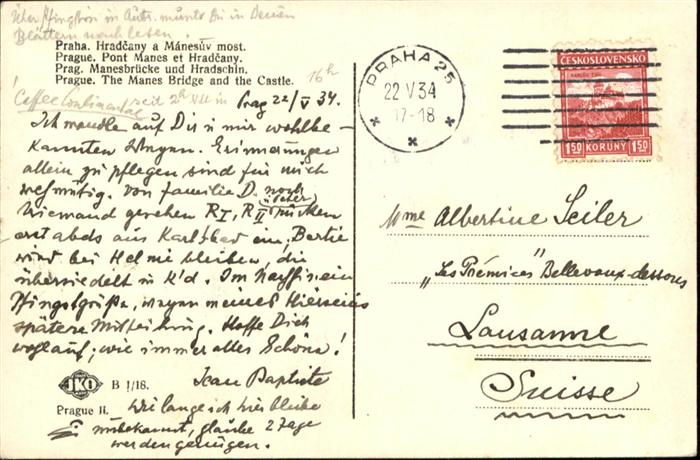 in Autr. mußt Du in Deinen
Blättern nachlesen.
Praha. Hradčany a Mánesův most.
Prague. Pont Manes et Hradčany.
Prag. Manesbrücke und Hradschin.
Prague. The Manes Bridge and the Castle.
16h
seit 2h in Prag 22/V 34.
Ich wandle auf Dir u mir wohlbe-
kannten Wegen. Erinnerungen
allein zu pflegen sind für mich
wehmütig. Von Familie D. noch
Niemand gesehen R I, R II rücken
erst abds aus Karlsbad ein. Bertie
wird bei Helmi bleiben, die
übersiedelt in K'd.
Pfingstgrüße, wegen meines Hierseins
spätere Mitteilung. Hoffe Dich
wohlauf; wie immer alles Schöne!
Jean Baptiste
JKO B 1/18.
Prague II. Wie lange ich hier bleibe
unbekannt, glaube 2 Tage
werden genügen.
PRAHA 25
22 V 34
17-18
ČESKOSLOVENSKO
1·50 KORUNY 1·50
Mme Albertine Seiler
„Les Prémices" Bellevaux-dessous
Lausanne
Suisse